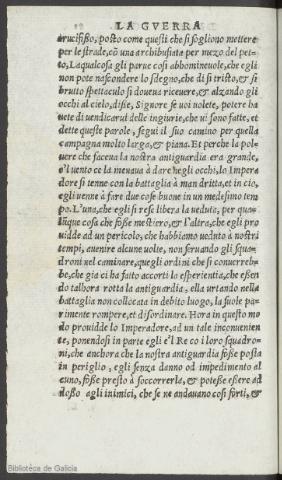 LA GVERRA
crucifisso, posto come questi che si sogliono mettere
per le strade, cõ una archibusiata per mezo del pet-
to, Laqualcosa gli parue cosi abbomineuole, che egli
non pote nascondere lo sdegno, che di si tristo, & si
brutto spettaculo si doueua riceuere, & alzando gli
occhi al cielo, disse, Signore se uoi uolete, potere ha
uete di uendicarui delle ingiurie, che ui sono fatte, et
dette queste parole, seguì il suo camino per quella
campagna molto larga, & piana. Et perche la pol-
uere che faceua la nostra antiguardia era grande,
e'l uento ce la menaua à dare negli occhi, lo Impera
dore si tenne con la battaglia à man dritta, et in cio,
egli uenne à fare due cose buone in un medesimo tem
po. L'una, che egli si rese libera la ueduta, per qua-
lunque cosa che fosse mestiero, & l'altra, che egli pro
uidde ad un pericolo, che habbiamo ueduto à nostri
tempi, auenire alcune uolte, non seruando gli squa-
droni nel caminare, quegli ordini che si conuerreb-
be, che gia ci ha fatto accorti la esperientia, che essen
do talhora rotta la antiguardia, ella urtando nella
battaglia non collocata in debito luogo, la suole pa-
rimente rompere, et disordinare. Hora in questo mo
do prouidde lo Imperadore, ad un tale inconuenien
te, ponendosi in parte egli e'l Re co i loro squadro-
ni, che anchora che la nostra antiguardia fosse posta
in periglio, egli senza danno od impedimento al
cuno, fosse presto à soccorrerla, & potesse essere ad
dosso agli inimici, che se ne andauano cosi forti, &
Biblioteca de Galicia